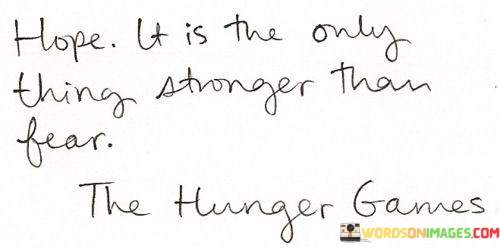 Hope. It is the only
thing stronger than
fear.
The Hunger Games
WORDSONIMAGES.COM